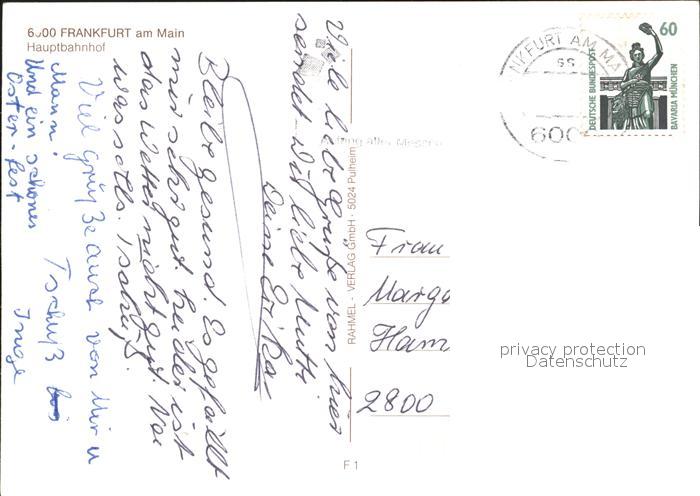 6000 FRANKFURT am Main
Hauptbahnhof
Viele liebe Grüße von hier
sendet Dir liebe Mutti
Deine Erika
Bleibe gesund. Es gefällt
mir sehr gut. Leider ist
das Wetter nicht gut. Na
was solls. Tschüß.
Viel Grüße auch von Mir u
Mann!
Und ein schönes
Oster-fest
Tschüß bis
Inge
RAHMEL - VERLAG GmbH · 5024 Pulheim
F 1
NKFURT AM MA
600
60
DEUTSCHE BUNDESPOST
BAVARIA MÜNCHEN
Frau
Marga
Ham
2800
privacy protection
Datenschutz